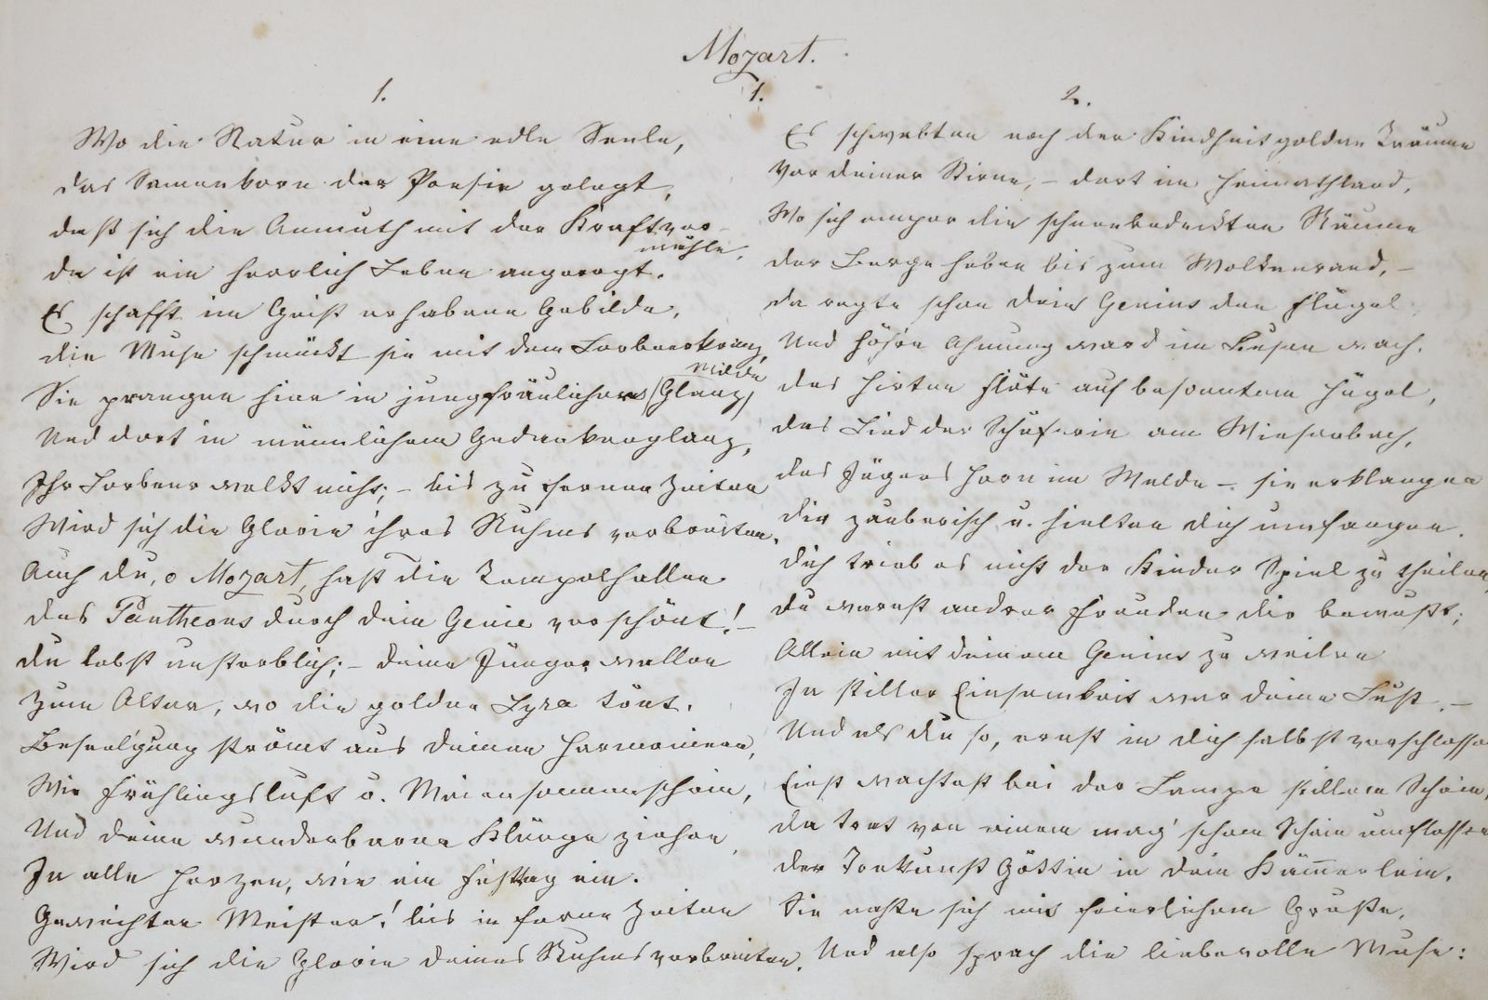 Mozart.
1.
1.
Wo die Natur in eine edle Seele,
das Samenkorn der Poesie gelegt,
daß sich die Anmuth mit der Kraft ver-
mähle,
da ist ein herrlich Leben angeregt.
Es schafft im Geist erhabene Gebilde,
die Muse schmückt sie mit dem Lorbeerkranz,
Milde
Sie prangen hier in jungfräulicher (Glanz)
Und dort in männlichem Gedankenglanz,
Ihr Lorbeer welkt nicht; – bis zu fernen Zeiten
Wird sich die Glorie ihres Ruhms verbreiten.
Auch du, o Mozart, hast die Tempelhallen
des Pantheons durch dein Genie verschönt! –
du lebst unsterblich; – deine Jünger wallen
zum Altar, wo die goldne Lyra tönt.
Beseeligung strömt aus deinen Harmonieen,
Wie Frühlingsluft u. Maiensonnenschein,
Und deine wunderbaren Klänge ziehen
In alle Herzen, wie ein Festtag ein.
Geweihter Meister! bis in ferne Zeiten
Wird sich die Glorie deines Ruhms verbreiten.
2.
Es schwebten noch der Kindheit goldne Träume
Vor deiner Stirne, – dort im Heimathland,
Wo sich empor die schneebedeckten Räume
der Berge heben bis zum Wolkenrand, –
da regte schon dein Genius den Flügel
Und höh're Ahnung ward im Busen wach.
des Hirten Flöte auf besonntem Hügel,
das Lied der Schäferin am Wiesenbach,
des Jägers Horn im Walde – sie erklangen
dir zauberisch u. hielten dich umfangen.
dich trieb es nicht der Kinder Spiel zu theilen,
du warst andrer Freuden dir bewußt;
Allein mit deinem Genius zu weilen
In stiller Einsamkeit war deine Lust. –
Und als du so, ernst in dich selbst verschlossen
Einst wachtest bei der Lampe stillem Schein,
da trat von einem mag'schen Schein umflossen
der Tonkunst Göttin in dein Kämmerlein.
Sie nahte sich mit feierlichem Gruße,
Und also sprach die liebevolle Muse: